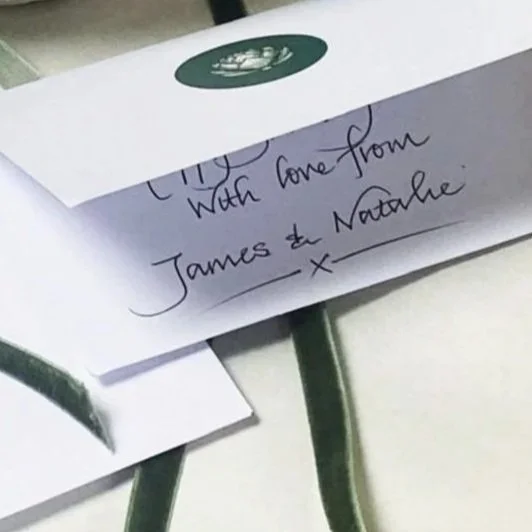 With love from
James & Natalie
x